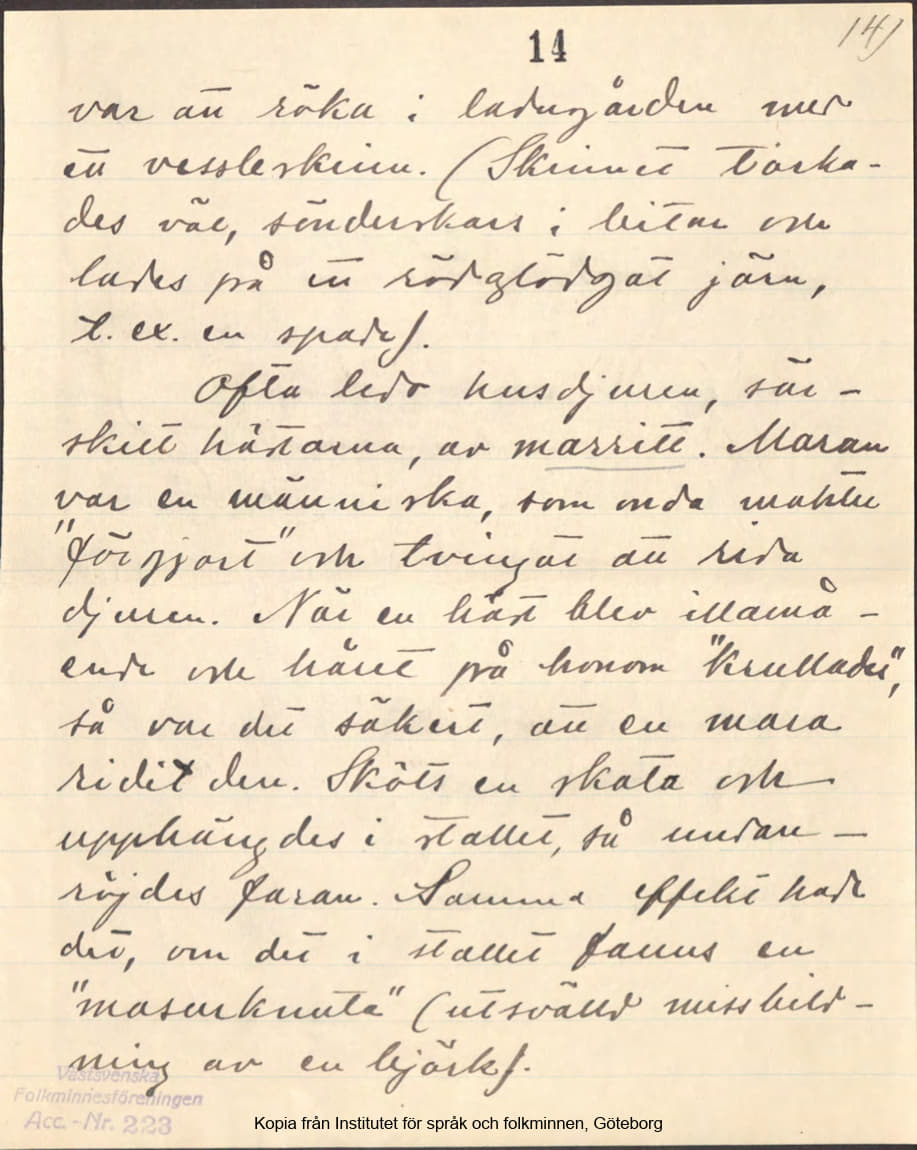 14
14)
var att röka i ladugården med
ett vessleskinn. (Skinnet torka-
des väl, sönderskars i bitar och
lades på ett rödglödgat järn,
t. ex. en spade).
Ofta ledo husdjuren, sär-
skilt hästarna, av marritt. Maran
var en människa, som onda makter
"förgjort" och tvingat att rida
djuren. När en häst blev illamå-
ende och håret på honom "krullades",
så var det säkert, att en mara
ridit den. Sköts en skata och
upphängdes i stallet, så undan-
röjdes faran. Samma effekt hade
det, om det i stallet fanns en
"masurknuta" (utsvälld missbild-
ning av en björk).
Västsvenska
Folkminnesföreningen
Acc. - Nr. 223
Kopia från Institutet för språk och folkminnen, Göteborg